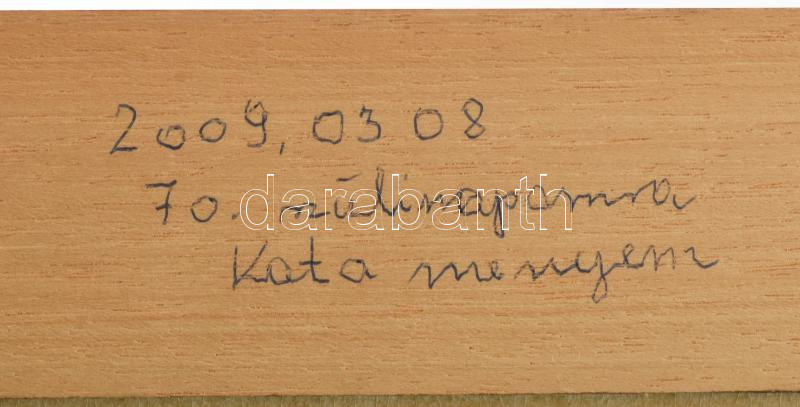 2009, 03 08
70. szülinapomra
Kata menyem
darabanth